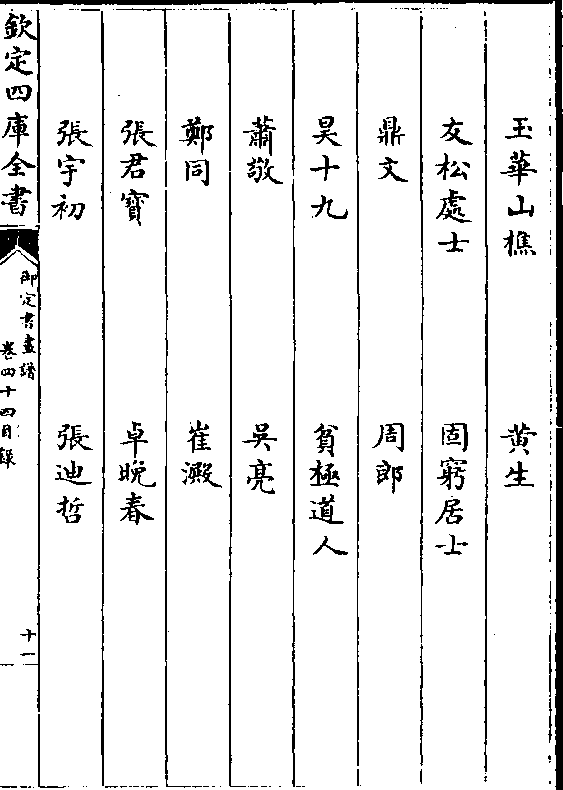 玉華山樵 黄生
友松處士 固窮居士
鼎文 周郎
昊十九 貧極道人
蕭敬 吳亮
鄭同 崔澱
張君寶 卓晚春
張宇初 張迪哲
欽定四庫全書
御定書畫譜
卷四十四目録
十一